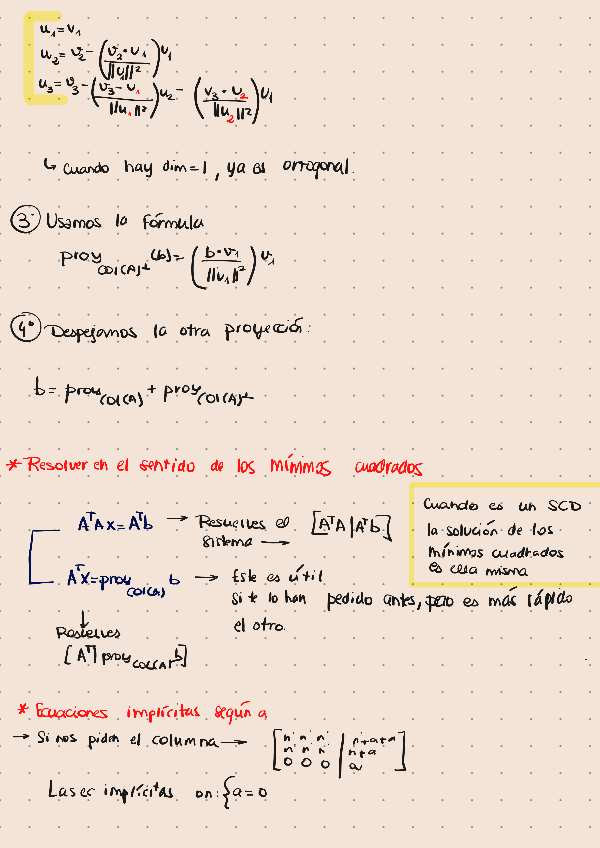 u₁=v₁
u₂= v₂-(v₂·u₁/||u₁||²)u₁
u₃= v₃-(v₃-u₁/||u₁||²)u₂- (v₃·u₂/||u₂||²)u₁
↳ cuando hay dim=1, ya es ortogonal.
3º Usamos la fórmula
proy_Col(A)⊥ (b)= (b·v₁/||v₁||²) v₁
4º Despejamos la otra proyección:
b= proy_Col(A) + proy_Col(A)⊥
* Resolver en el sentido de los mínimos cuadrados
AᵀAx=Aᵀb → Resuelves el [AᵀA|Aᵀb]
sistema →
Cuando es un SCD
la solución de los
mínimos cuadrados
es esa misma
Aᵀx=proy_Col(A) b → Este es útil
si te lo han pedido antes, pero es más rápido
el otro.
↓
Resuelves
[Aᵀ| proy_Col(A) b]
* Ecuaciones implícitas según a
→ Si nos piden el columna → [n n n | n+a+a
n n n | n+a
0 0 0 | a]
Las ec implícitas on: {a=0